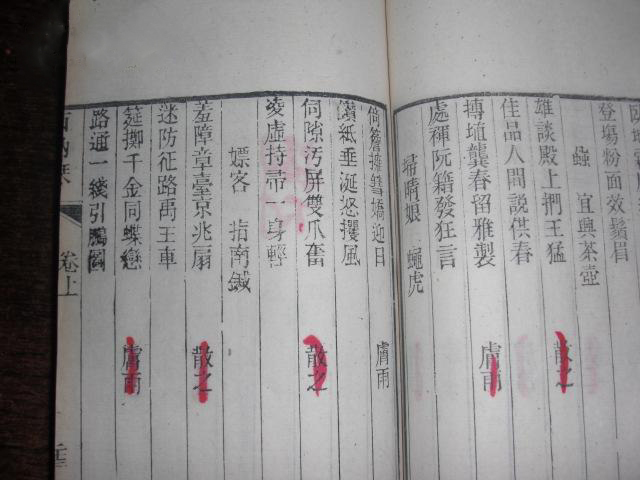 登塲粉面效鬚眉
蝨 宜興茶壺
雄談殿上捫王猛 散之
佳品人間說供春
摶埴龔春留雅製 膚雨
處褌阮籍發狂言
掃晴娘 蠅虎
倚簷擁篲嬌迎日 膚雨
漬紙垂涎怒攫風
伺隙汚屏雙爪奮 散之
凌虛持帚一身輕
嫖客 指南鍼
羞障章臺京兆扇 散之
迷防征路禹王車
筵擲千金同蝶戀 膚雨
路通一綫引鵬圖
卷上